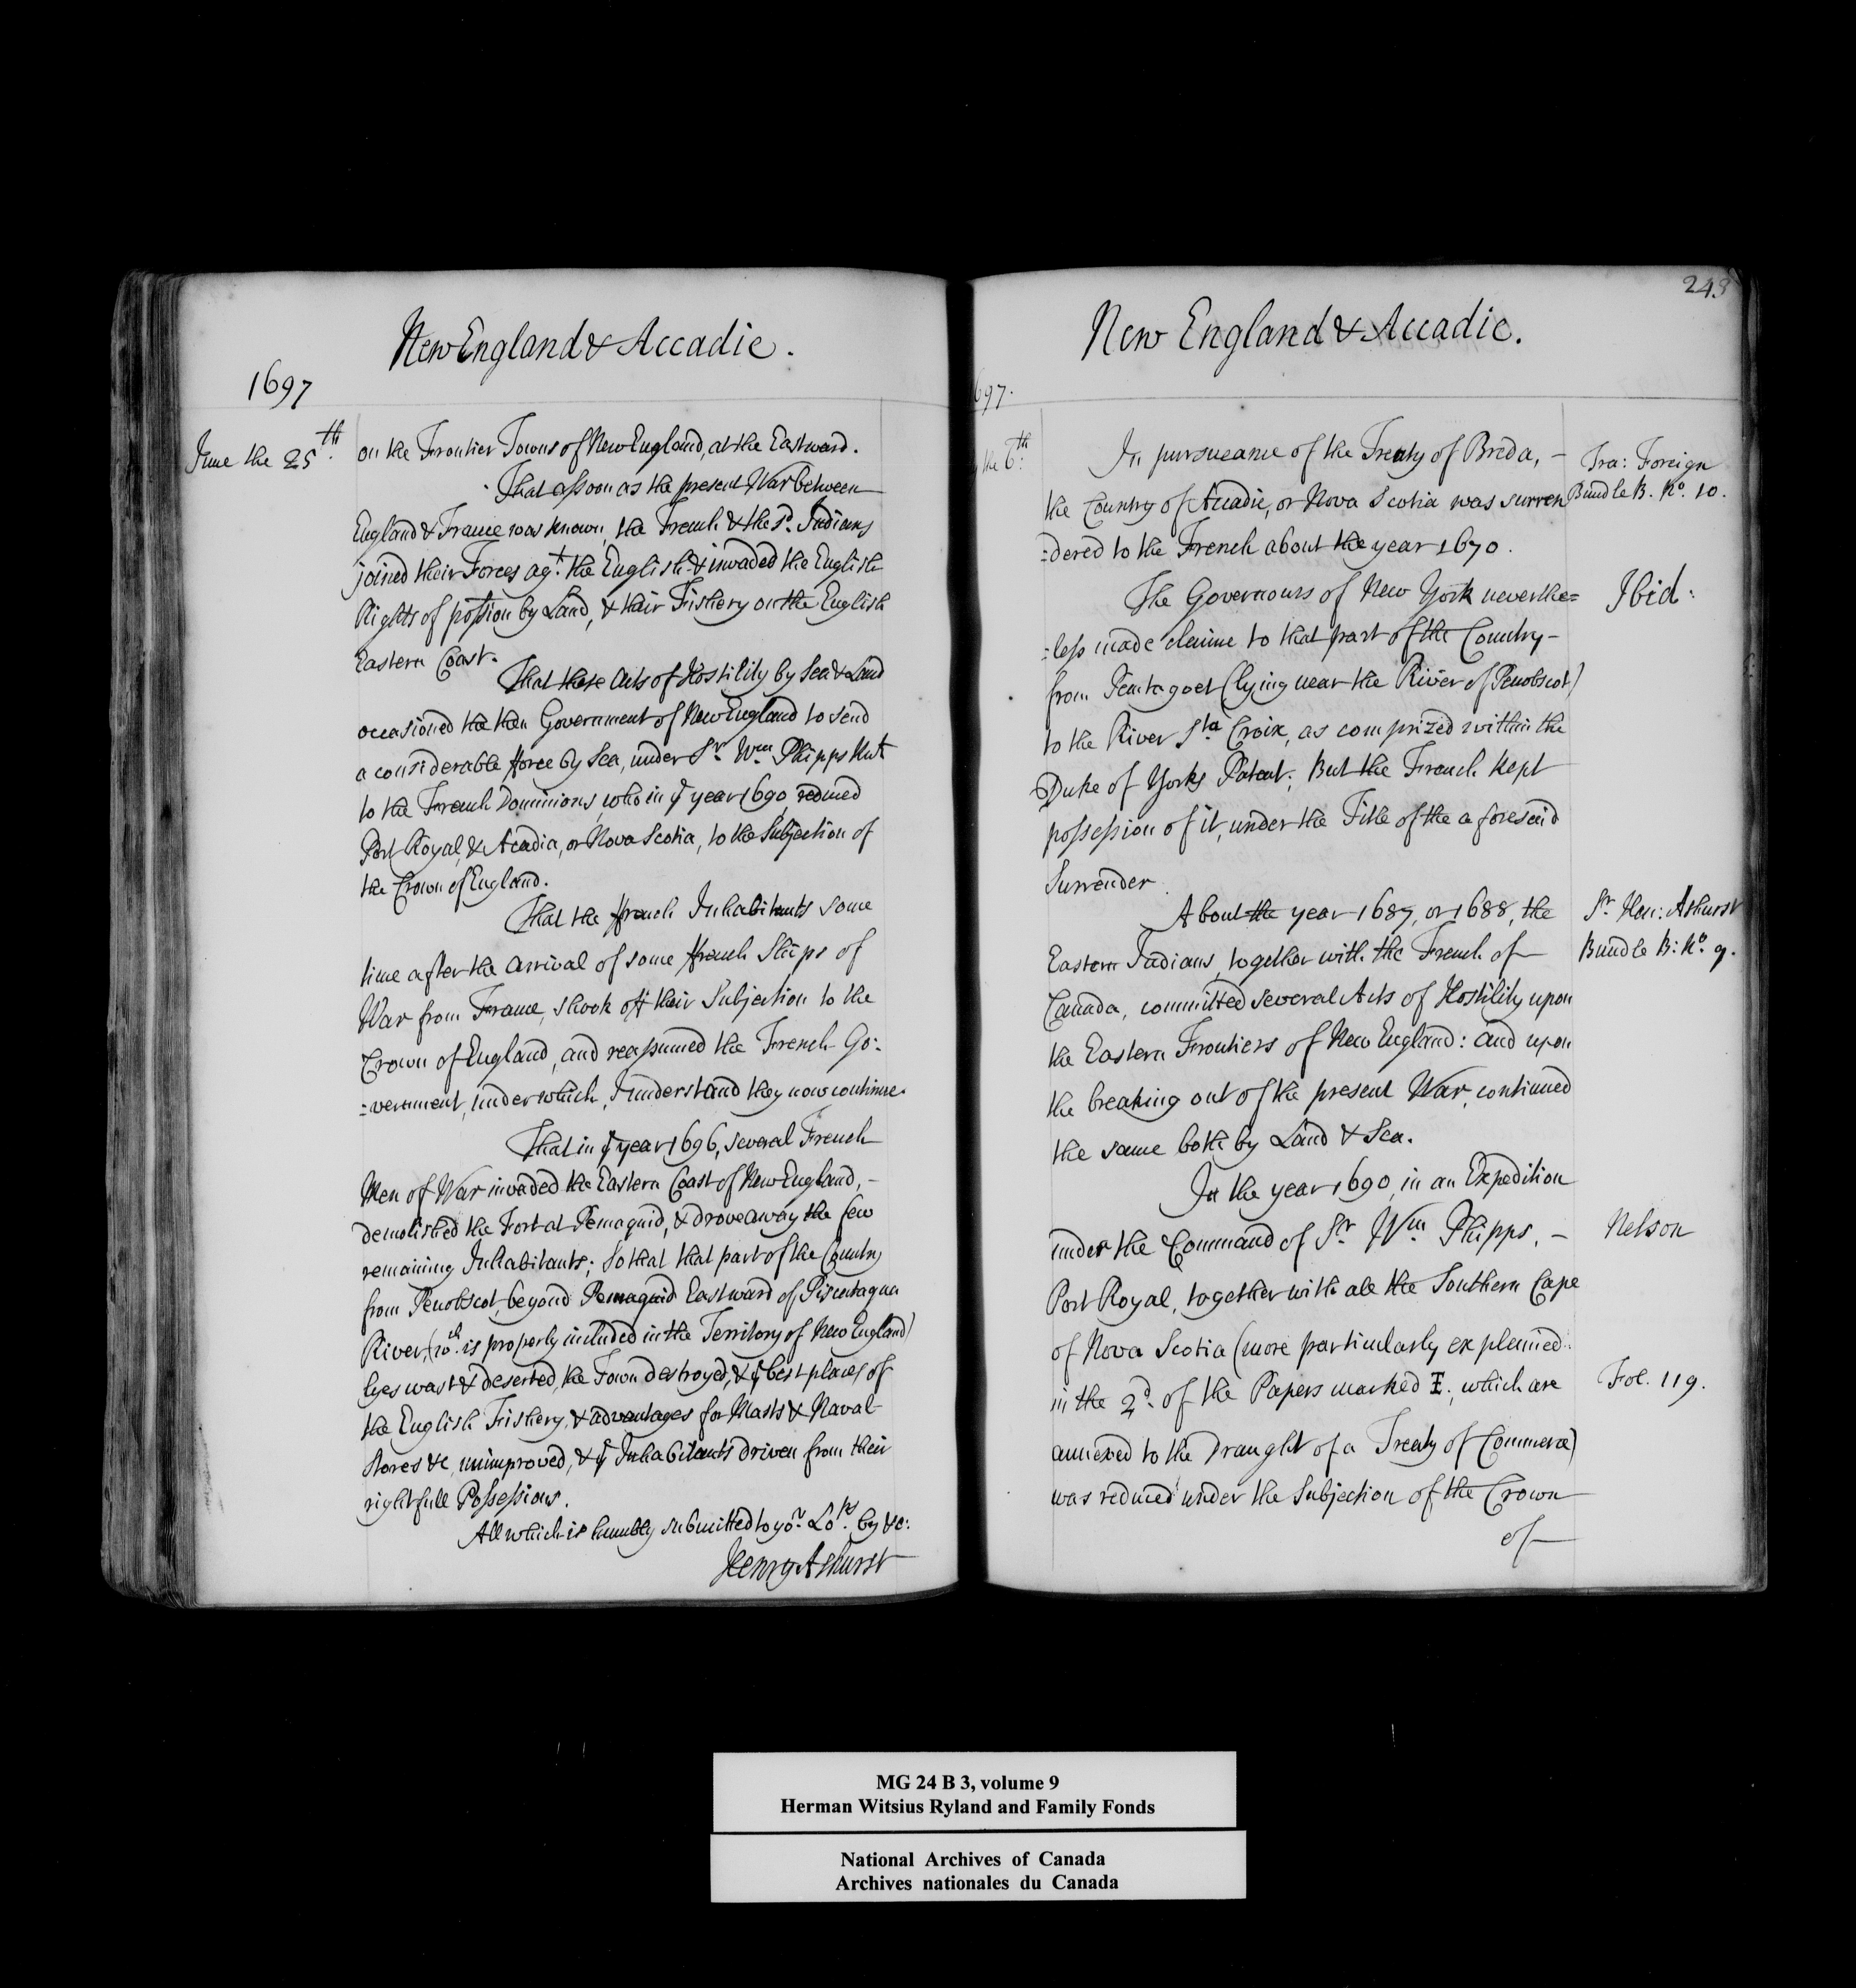 New England & Accadie.
1697
June the 25th.
on the Frontier Towns of New England, at the Eastward.
That assoon as the present War between
England & France was known, the French & the sd. Indians
joined their Forces agt. the English & invaded the English
Rights of possion by Land, & their Fishery on the English
Eastern Coast.
That these Acts of Hostility by Sea & Land
occasioned the then Government of New England to send
a considerable fforce by Sea, under Sr. Wm. Phipps Knt
to the French Dominions, who in ye year 1690, reduced
Port Royal, & Acadia, or Nova Scotia, to the Subjection of
the Crown of England.
That the ffrench Inhabitants some
time after the arrival of some ffrench Ships of
War from France, shook off their Subjection to the
Crown of England, and reassumed the French Go:
=vernment, under which, I understand they now continue.
That in ye year 1696, several French
Men of War invaded the Eastern Coast of New England, -
demolished the Fort at Pemaquid, & drove away the few
remaining Inhabitants; So that that part of the Country
from Penobscot, beyond Pemaquid Eastward of Piscataqua
River, (wch. is properly included in the Territory of New England)
lyes wast & deserted, the Town destroyed, & ye best places of
the English Fishery, & advantages for Masts & Naval
Stores &c, unimproved, & ye Inhabitants driven from their
rightfull Possessions.
All which is humbly submitted to yor. Lops. by &c:
Henry Ashurst
248
New England & Accadie.
697.
the 6th.
In pursueance of the Treaty of Breda, -
the Country of Accadie, or Nova Scotia was surren
=dered to the French about the year 1670.
Tra: Foreign
Bundle B. No. 10.
The Governours of New York neverthe=
=less made claime to that part of the Country -
from Pentagoet (lying near the River of Penobscot)
to the River Sta Croix, as comprized within the
Duke of Yorks Patent; But the French kept
possession of it, under the Title of the aforesaid
Surrender.
Ibid:
About the year 1687, or 1688, the
Eastern Indians, together with the French of
Canada, committed several Acts of Hostility upon
the Eastern Frontiers of New England: and upon
the breaking out of the present War, continued
the same both by Land & Sea.
Sr. Hen: Ashurst
Bundle B: No. 9.
In the year 1690, in an Expedition
under the Command of Sr. Wm. Phipps, -
Port Royal, together with all the Southern Cape
of Nova Scotia (more particularly explained
in the 2d. of the Papers marked I; which are
annexed to the Draught of a Treaty of Commerce)
was reduced under the Subjection of the Crown
of
Nelson
Fol. 119.
MG 24 B 3, volume 9
Herman Witsius Ryland and Family Fonds
National Archives of Canada
Archives nationales du Canada